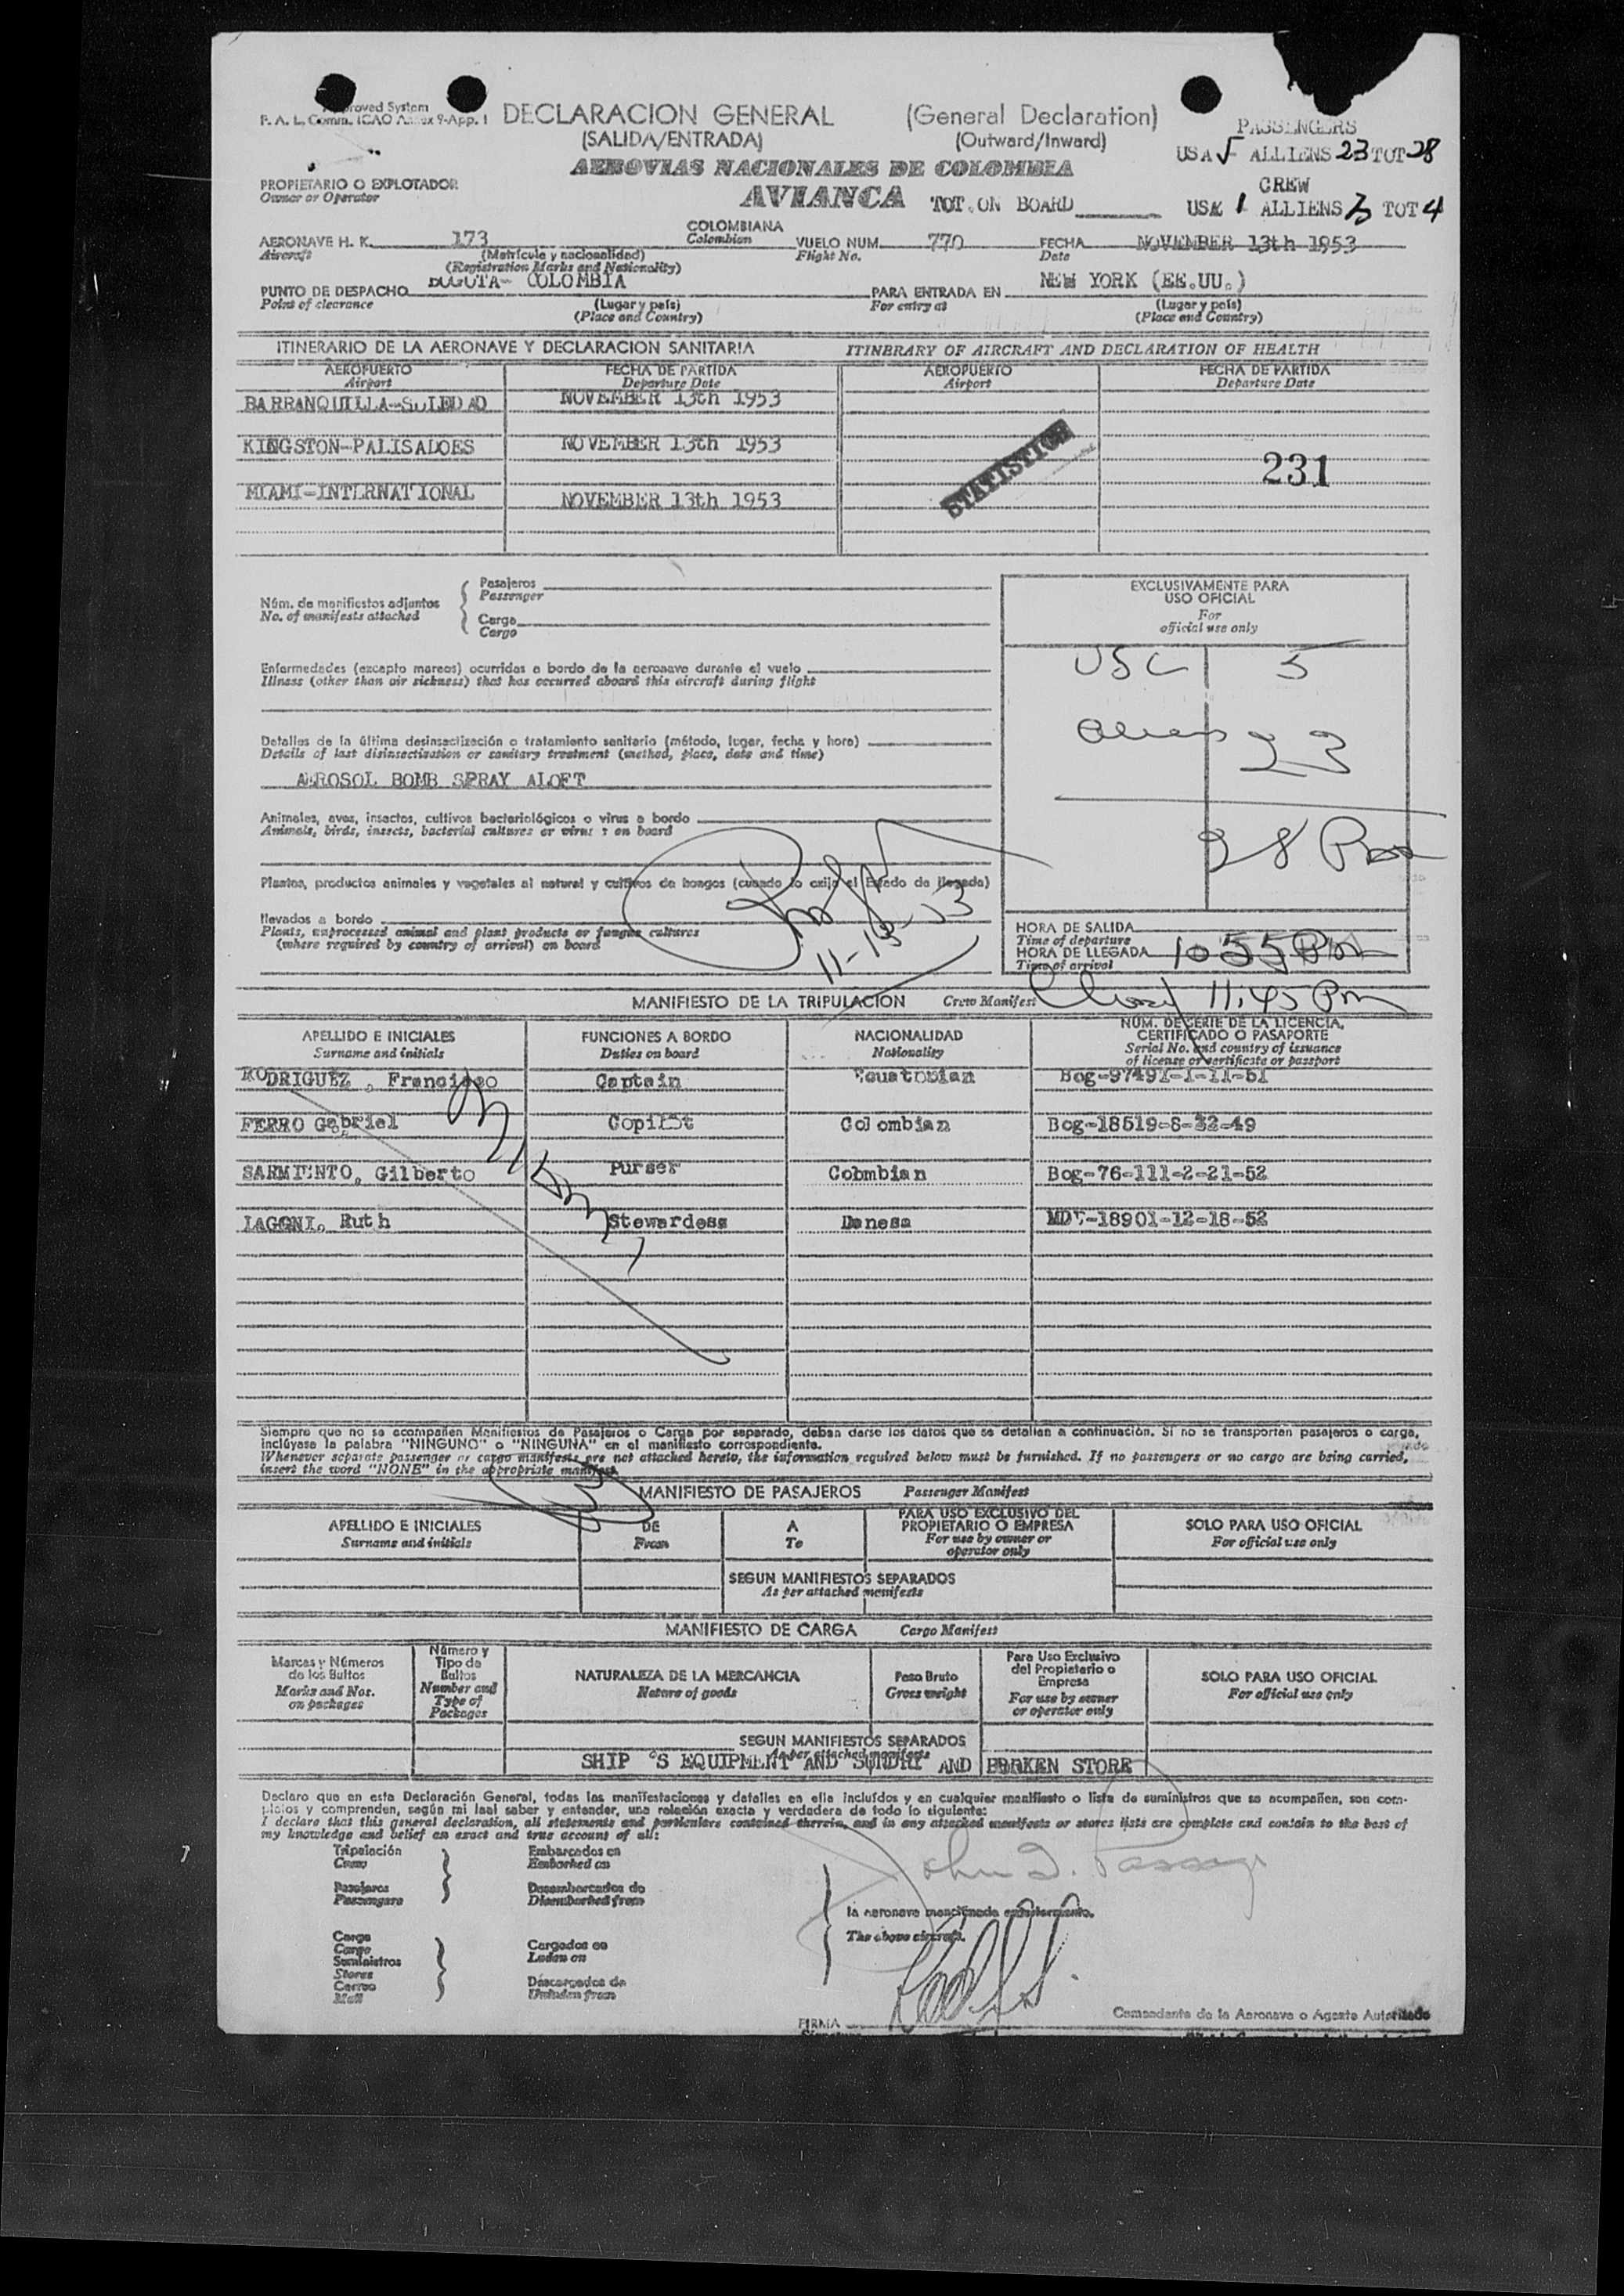 Approved System
F. A. L. Comm. ICAO Annex 9-App. 1
DECLARACION GENERAL (General Declaration)
(SALIDA/ENTRADA) (Outward/Inward)
PASSENGERS
USA 5 ALLIENS 23 TOT 28
AEROVIAS NACIONALES DE COLOMBIA
AVIANCA
CREW
USA 1 ALLIENS 3 TOT 4
TOT. ON BOARD
PROPIETARIO O EXPLOTADOR
Owner or Operator
AERONAVE H. K. 173 COLOMBIANA VUELO NUM. 770 FECHA NOVEMBER 13th 1953
Aircraft Colombian Flight No. Date
(Matrícula y nacionalidad)
(Registration Marks and Nationality)
PUNTO DE DESPACHO BOGOTA- COLOMBIA PARA ENTRADA EN NEW YORK (EE.UU.)
Point of clearance (Lugar y país) For entry at (Lugar y país)
(Place and Country) (Place and Country)
ITINERARIO DE LA AERONAVE Y DECLARACION SANITARIA ITINERARY OF AIRCRAFT AND DECLARATION OF HEALTH
AEROPUERTO FECHA DE PARTIDA AEROPUERTO FECHA DE PARTIDA
Airport Departure Date Airport Departure Date
BARRANQUILLA-SOLEDAD NOVEMBER 13th 1953
KINGSTON-PALISADOES NOVEMBER 13th 1953
STATISTICS
231
MIAMI-INTERNATIONAL NOVEMBER 13th 1953
Núm. de manifiestos adjuntos
No. of manifests attached
Pasajeros
Passenger
Carga
Cargo
EXCLUSIVAMENTE PARA
USO OFICIAL
For
official use only
USC 5
Aliens 23
28
Enfermedades (excepto mareos) ocurridas a bordo de la aeronave durante el vuelo
Illness (other than air sickness) that has occurred aboard this aircraft during flight
Detalles de la última desinsectización o tratamiento sanitario (método, lugar, fecha y hora)
Details of last disinsectisation or sanitary treatment (method, place, date and time)
AEROSOL BOMB SPRAY ALOFT
Animales, aves, insectos, cultivos bacteriológicos o virus a bordo
Animals, birds, insects, bacterial cultures or virus : on board
Plantas, productos animales y vegetales al natural y cultivos de hongos (cuando lo exija el Estado de llegada)
llevados a bordo
Plants, unprocessed animal and plant products or fungus cultures
(where required by country of arrival) on board
11-13-53
HORA DE SALIDA
Time of departure
HORA DE LLEGADA 10 55 Pm
Time of arrival
11:45 Pm
MANIFIESTO DE LA TRIPULACION Crew Manifest
APELLIDO E INICIALES FUNCIONES A BORDO NACIONALIDAD NUM. DE SERIE DE LA LICENCIA, CERTIFICADO O PASAPORTE
Surname and initials Duties on board Nationality Serial No. and country of issuance of license or certificate or passport
RODRIGUEZ , Francisco Captain Ecuatorian Bog-97491-1-11-51
FERRO Gabriel Copilot Colombian Bog-18519-8-32-49
SARMIENTO, Gilberto Purser Colombian Bog-76-111-2-21-52
LAGONI, Ruth Stewardess Danesa MDE-18901-12-18-52
Siempre que no se acompañen Manifiestos de Pasajeros o Carga por separado, deban darse los datos que se detallan a continuación. Si no se transportan pasajeros o carga,
inclúyase la palabra "NINGUNO" o "NINGUNA" en el manifiesto correspondiente.
Whenever separate passenger or cargo manifests are not attached hereto, the information required below must be furnished. If no passengers or no cargo are being carried,
insert the word "NONE" in the appropriate manifest.
MANIFIESTO DE PASAJEROS Passenger Manifest
APELLIDO E INICIALES DE A PARA USO EXCLUSIVO DEL PROPIETARIO O EMPRESA SOLO PARA USO OFICIAL
Surname and initials From To For use by owner or operator only For official use only
SEGUN MANIFIESTOS SEPARADOS
As per attached manifests
MANIFIESTO DE CARGA Cargo Manifest
Marcas y Números de los Bultos Número y Tipo de Bultos NATURALEZA DE LA MERCANCIA Peso Bruto Para Uso Exclusivo del Propietario o Empresa SOLO PARA USO OFICIAL
Marks and Nos. on packages Number and Type of Packages Nature of goods Gross weight For use by owner or operator only For official use only
SEGUN MANIFIESTOS SEPARADOS
As per attached manifests
SHIP 'S EQUIPMENT AND SUNDRY AND BROKEN STORE
Declaro que en esta Declaración General, todas las manifestaciones y detalles en ella incluídos y en cualquier manifiesto o lista de suministros que se acompañen, son com-
pletos y comprenden, según mi leal saber y entender, una relación exacta y verdadera de todo lo siguiente:
I declare that this general declaration, all statements and particulars contained therein, and in any attached manifests or stores lists are complete and contain to the best of
my knowledge and belief an exact and true account of all:
Tripulación
Crew
Embarcados en
Embarked on
Pasajeros
Passengers
Desembarcados de
Disembarked from
la aeronave mencionada anteriormente.
The above aircraft.
Carga
Cargo
Suministros
Stores
Correo
Mail
Cargados en
Laden on
Descargados de
Unladen from
FIRMA
Signature
Comandante de la Aeronave o Agente Autorizado